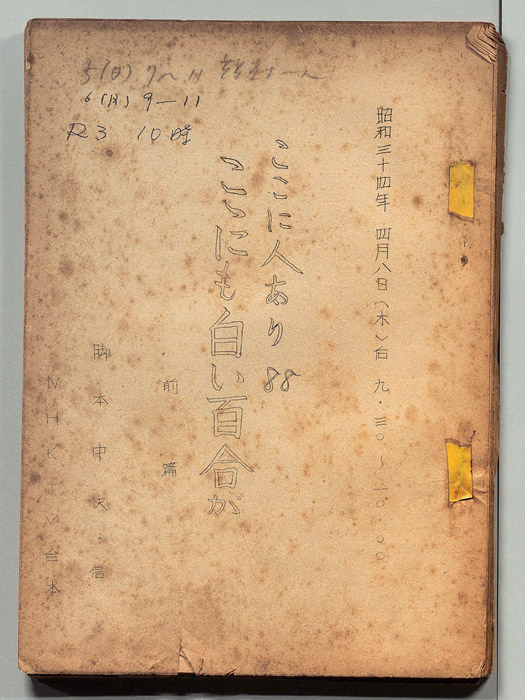 5(日) 7〜11
6(月) 9—11
R3 10時
昭和三十四年 四月八日(木)后 九・三〇〜一〇・〇〇
ここに人あり 88
こゝにも白い百合が
前篇
脚本 中沢 信
NHK TV台本